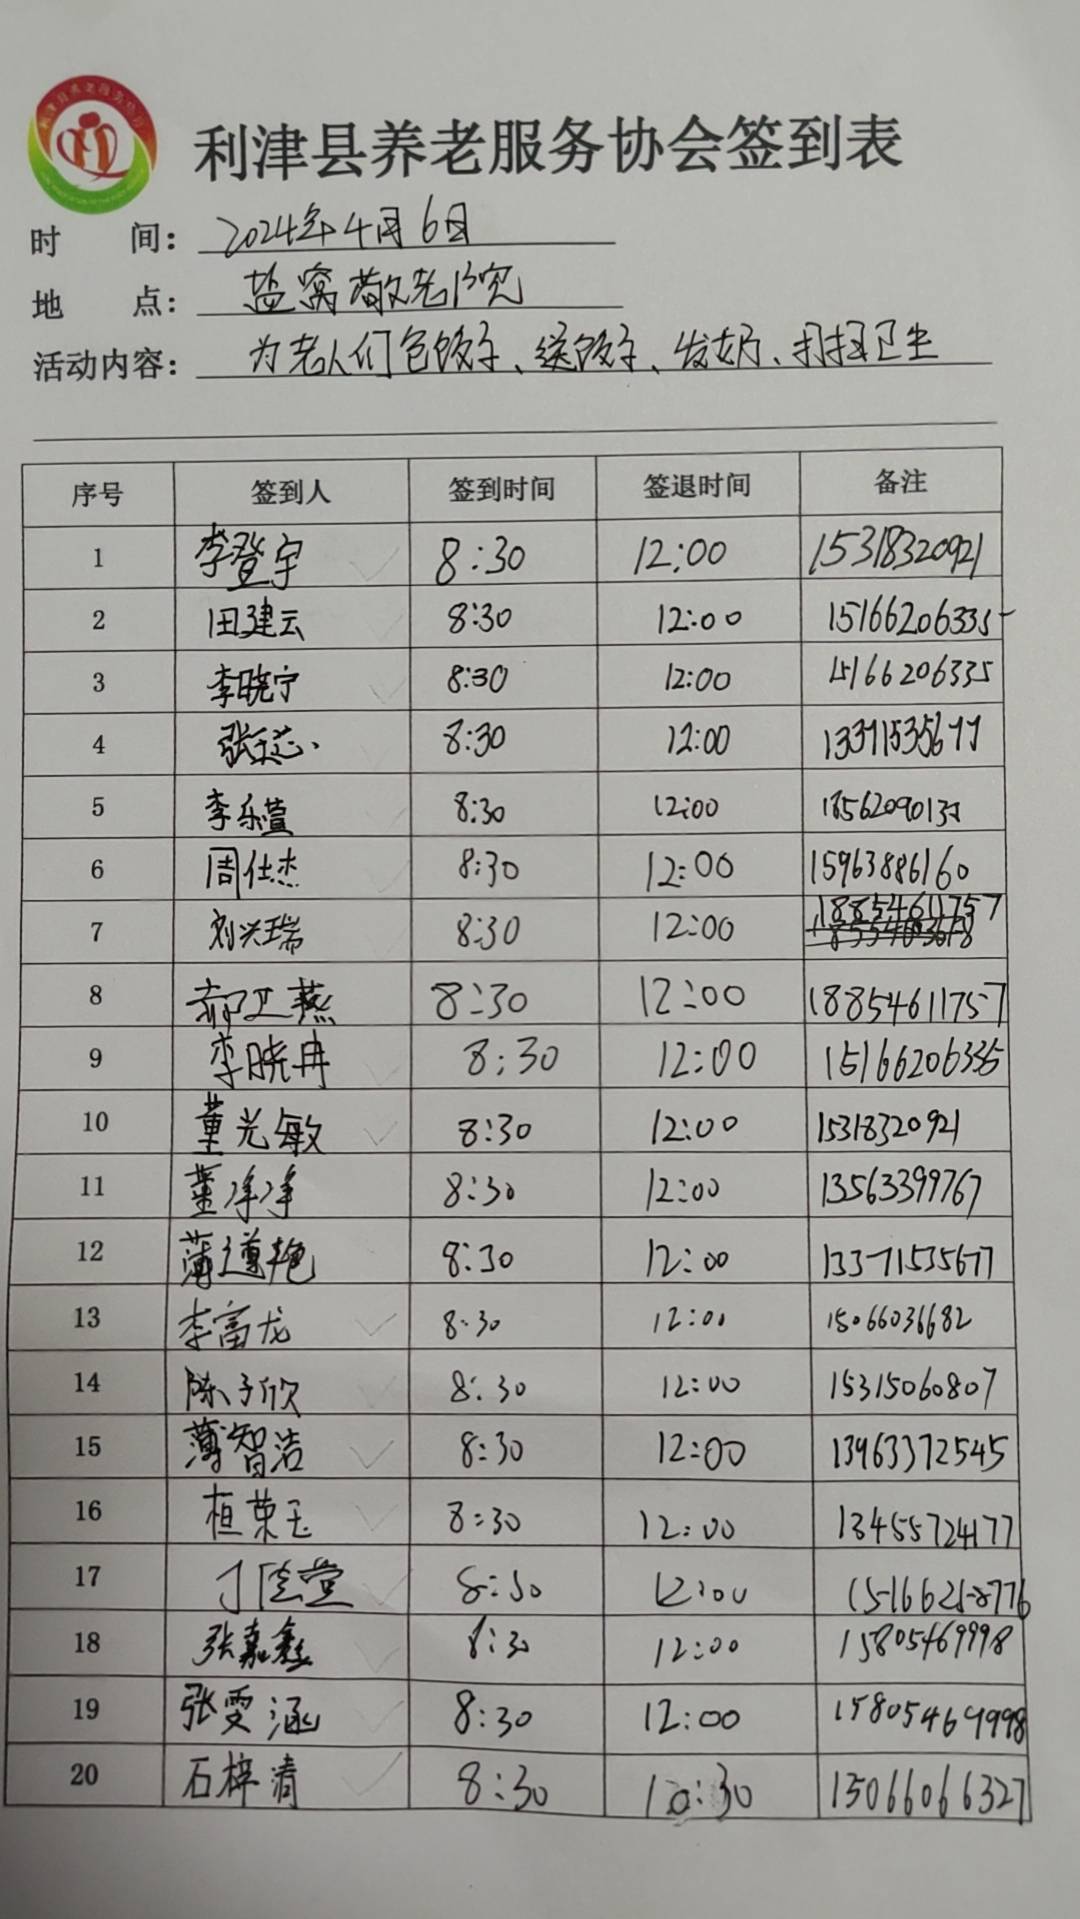 利津县养老服务协会签到表
时 间: 2024年4月6日
地 点: 盐窝敬老院
活动内容: 为老人们包饺子、送饺子、发奶、打扫卫生
序号 签到人 签到时间 签退时间 备注
1 李登宇 8:30 12:00 15318320921
2 田建云 8:30 12:00 15166206335
3 李晓宁 8:30 12:00 15166206335
4 8:30 12:00 13371535677
5 李乐萱 8:30 12:00
6 周仕杰 8:30 12:00 15963886160
7 刘兴瑞 8:30 12:00 18854611757
8 郝卫燕 8:30 12:00 18854611757
9 李晓冉 8:30 12:00 15166206335
10 董光敏 8:30 12:00 15318320921
11 董净净 8:30 12:00 13563399767
12 薄遵艳 8:30 12:00 13371535677
13 李富龙 8:30 12:00 15066036682
14 陈子欣 8:30 12:00 15315060807
15 薄智洁 8:30 12:00 13963372545
16 桓荣玉 8:30 12:00 13455724177
17 8:30 12:00
18 张嘉鑫 8:30 12:00 15805469998
19 张雯涵 8:30 12:00 15805469998
20 石梓清 8:30 10:30 15066066327